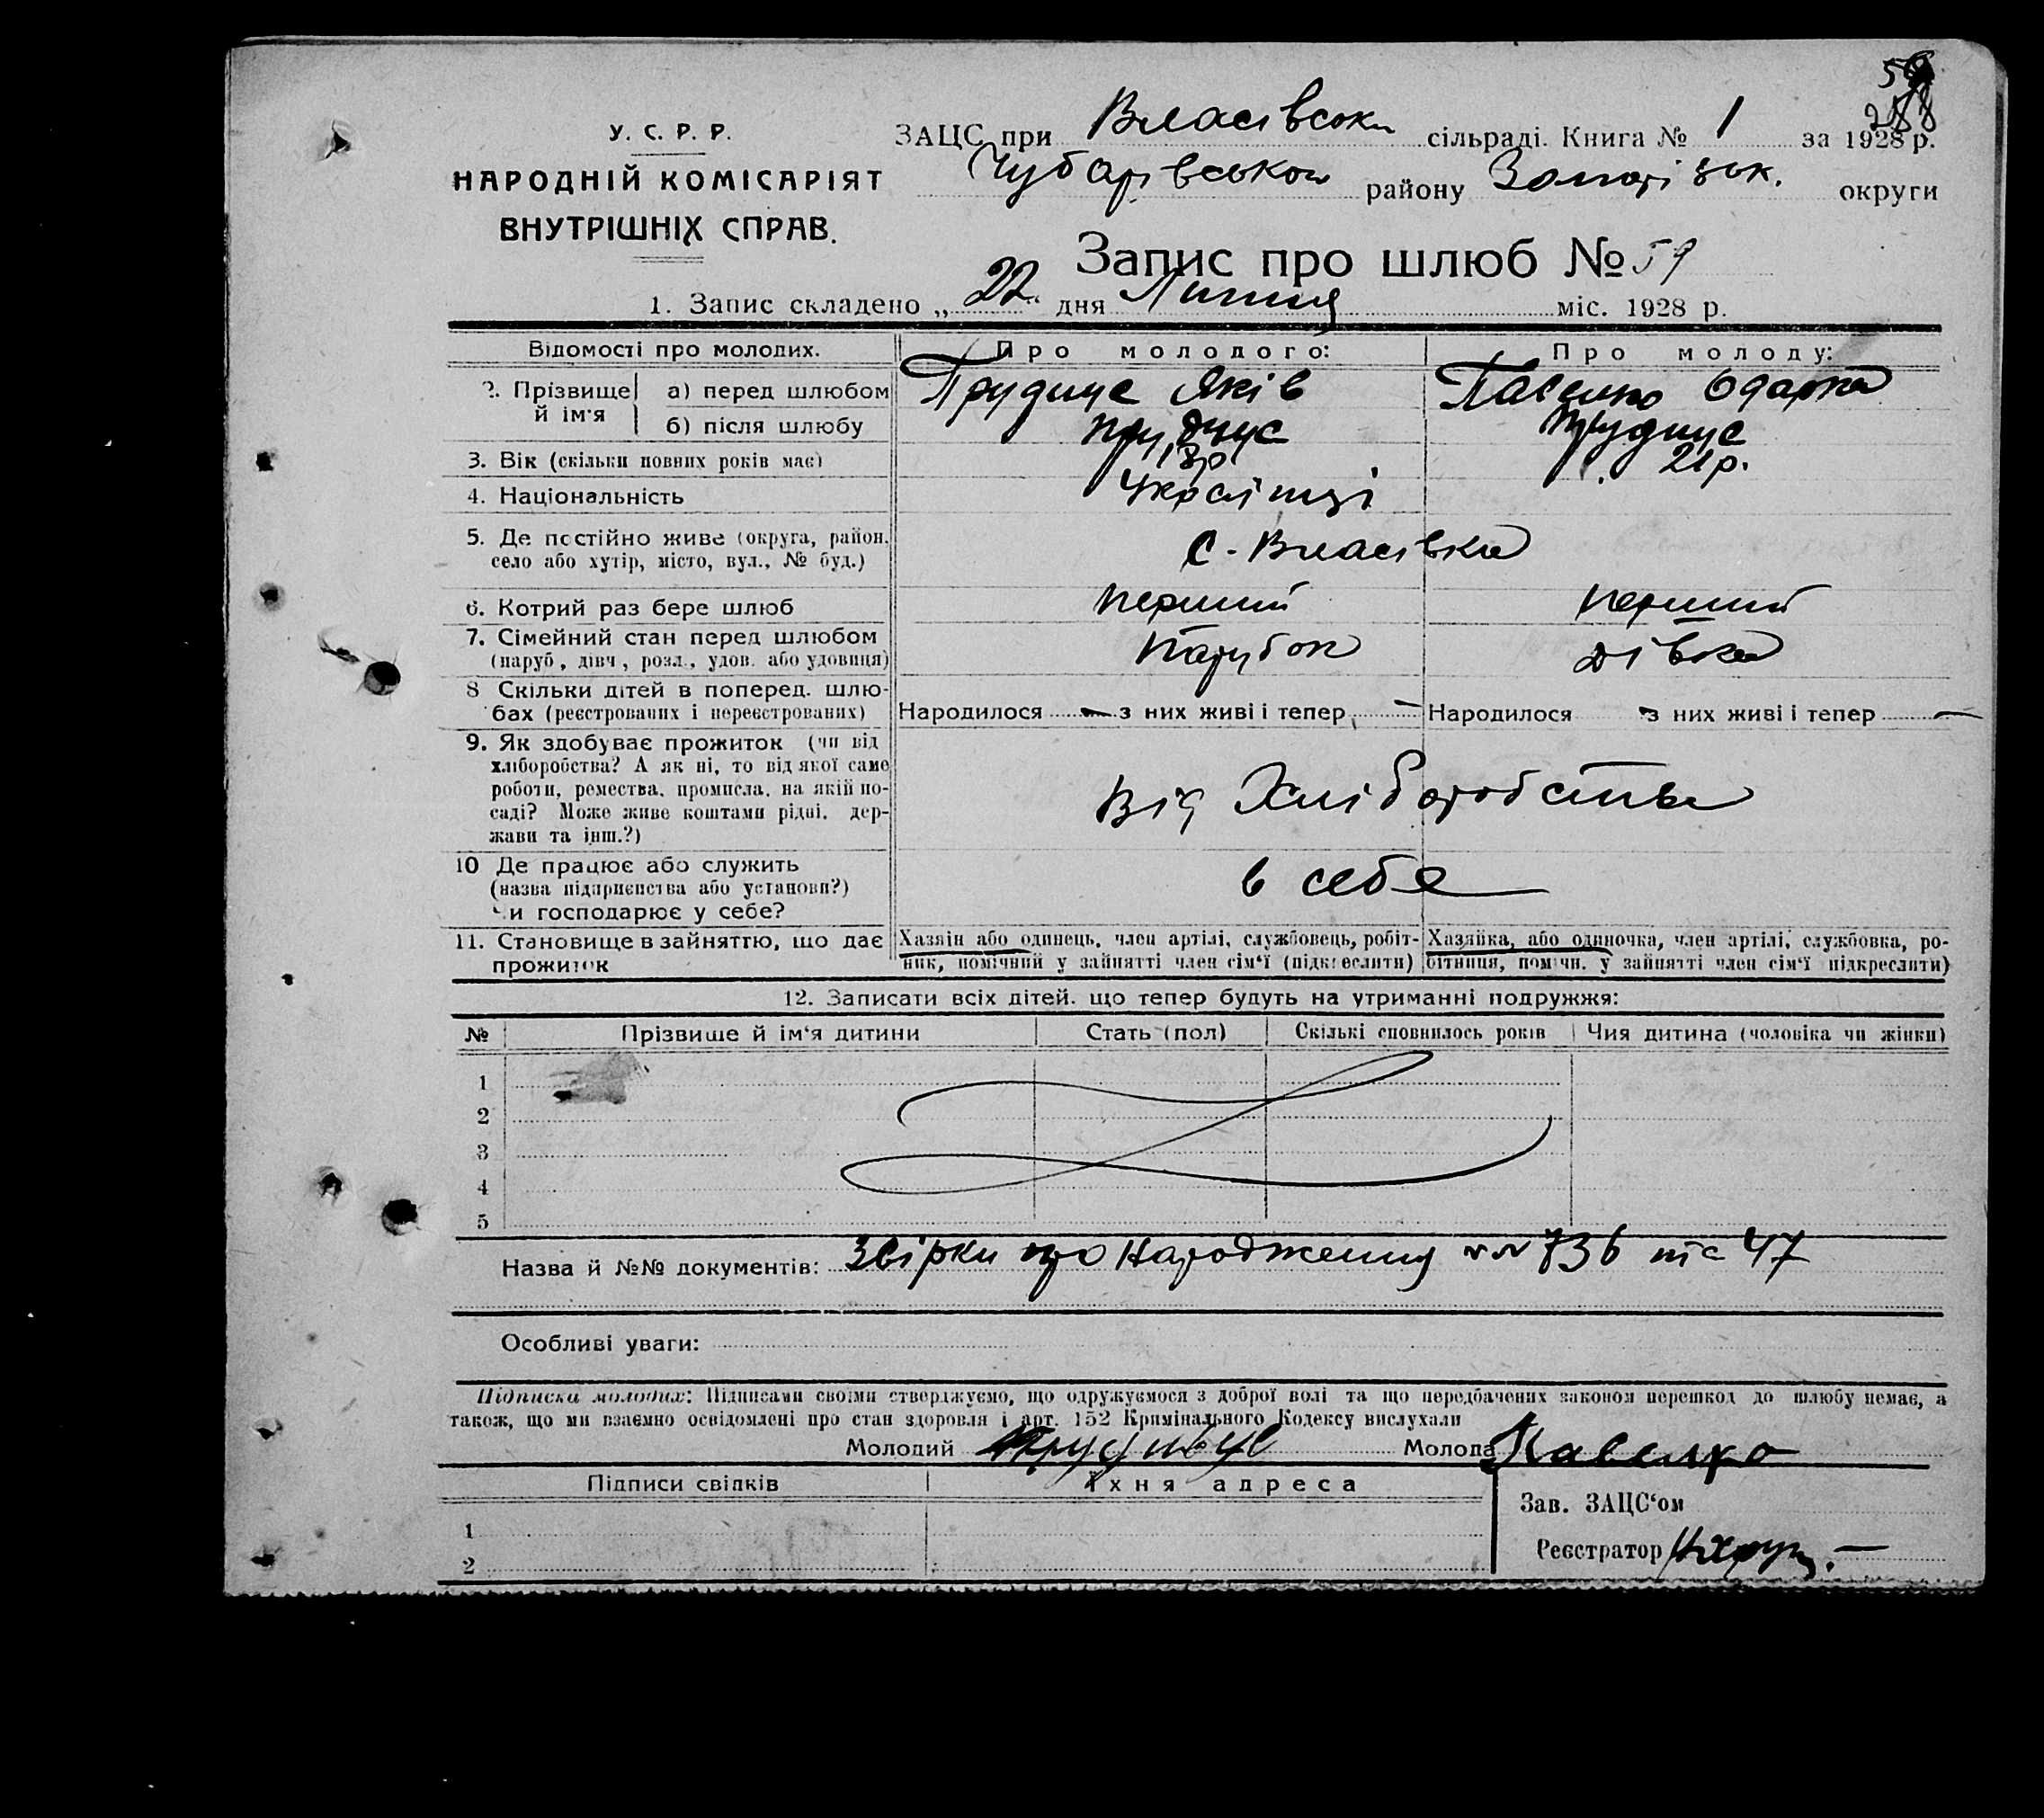 У. С. Р. Р.
НАРОДНІЙ КОМІСАРІЯТ
ВНУТРІШНІХ СПРАВ.
ЗАЦС при Власівськ. сільраді. Книга № 1 за 1928 р.
Чубарівського району Запоріжськ. округи
Запис про шлюб № 59
1. Запис складено „22“ дня Липня міс. 1928 р.
Відомості про молодих. Про молодого: Про молоду:
2. Прізвище й ім'я а) перед шлюбом Прудиус Яків Павелко Одарка
б) після шлюбу Прудиус Прудиус
3. Вік (скільки повних років має) 21 р.
4. Національність Українці
5. Де постійно живе (округа, район, село або хутір, місто, вул., № буд.) с. Власівка
6. Котрий раз бере шлюб перший перший
7. Сімейний стан перед шлюбом (паруб, дівч, розл., удов. або удовиця) парубок дівка
8 Скільки дітей в поперед. шлюбах (реєстрованих і нереєстрованих) Народилося — з них живі і тепер — Народилося з них живі і тепер —
9. Як здобуває прожиток (чи від
хліборобства? А як ні, то від якої саме
роботи, ремества, промисла, на якій по-
саді? Може живе коштами рідні, дер-
жави та інш.?) Від Хліборобства
10 Де працює або служить
(назва підприємства або установи?)
Чи господарює у себе? в себе
11. Становище в зайняттю, що дає прожиток
Хазяїн або одинець, член артілі, службовець, робіт-
ник, помічний у зайнятті член сім‘ї (підкреслити)
Хазяйка, або одиночка, член артілі, службовка, ро-
бітниця, помічн. у зайнятті член сім‘ї підкреслити)
12. Записати всіх дітей. що тепер будуть на утриманні подружжя:
№ Прізвище й ім‘я дитини Стать (пол) Скількі сповнилось років Чия дитина (чоловіка чи жінки)
1
2
3
4
5
Назва й №№ документів: Звірки про народження №№ 736 та 47
Особливі уваги:
Підписка молодих: Підписами своїми стверджуємо, що одружуємося з доброї волі та що передбачених законом перешкод до шлюбу немає, а
також, що ми взаємно освідомлені про стан здоровля і арт. 152 Кримінального Кодексу вислухали
Молодий Молода Павелко
Підписи свідків Їхня адреса
1
2
Зав. ЗАЦС‘ом
Реєстратор